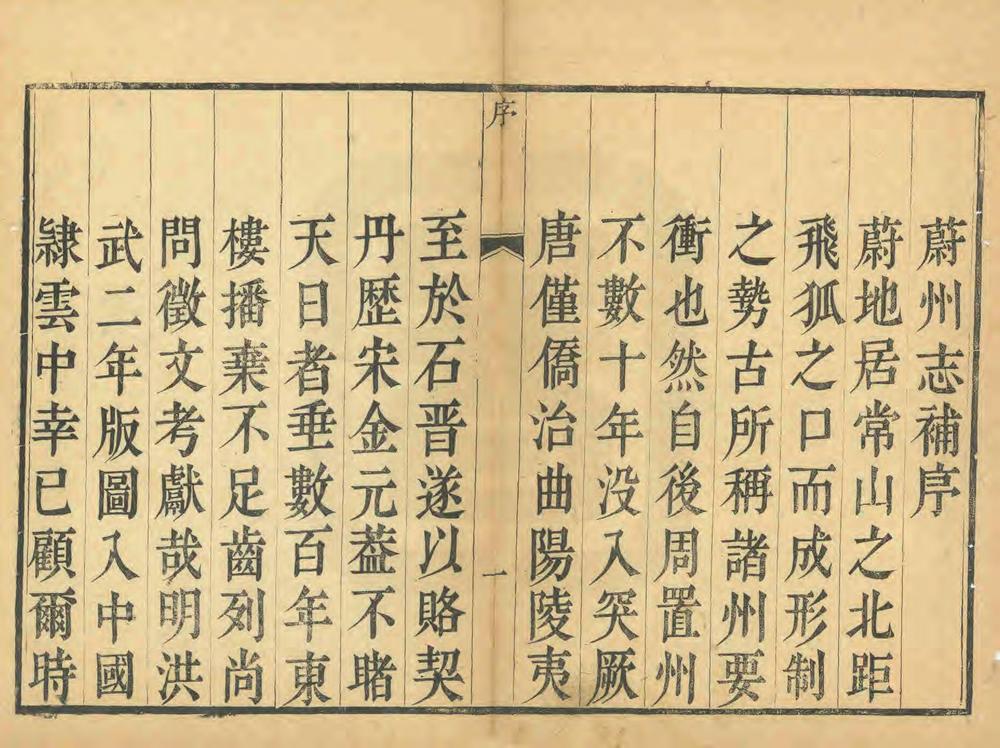 蔚州志補序
蔚地居常山之北距
飛狐之口而成形制
之勢古所稱諸州要
衝也然自後周置州
不數十年没入突厥
唐僅僑治曲陽陵夷
序
一
至於石晋遂以賂契
丹歴宋金元葢不睹
天日者垂數百年東
樓播棄不足齒列尚
問徵文考獻哉明洪
武二年版圖入中國
隷雲中幸已顧爾時